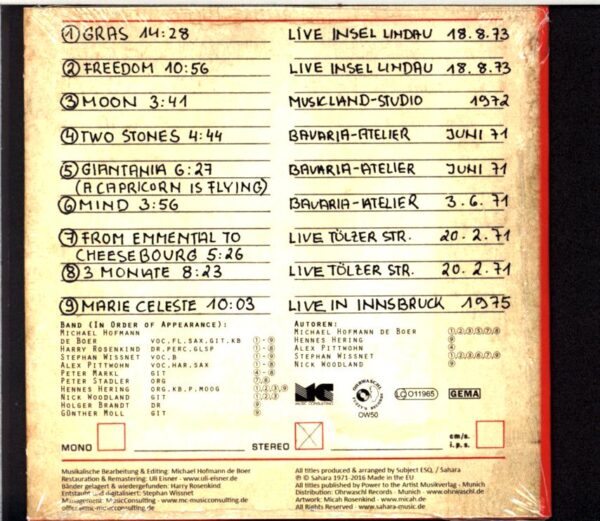 ① GRAS 14:28 LIVE INSEL LINDAU 18.8.73
② FREEDOM 10:56 LIVE INSEL LINDAU 18.8.73
③ MOON 3:41 MUSICLAND-STUDIO 1972
④ TWO STONES 4:44 BAVARIA-ATELIER JUNI 71
⑤ GIANTANIA 6:27 BAVARIA-ATELIER JUNI 71
(A CAPRICORN IS FLYING)
⑥ MIND 3:56 BAVARIA-ATELIER 3.6.71
⑦ FROM EMMENTAL TO LIVE TÖLZER STR. 20.2.71
CHEESEBOURG 5:26
⑧ 3 MONATE 8:23 LIVE TÖLZER STR. 20.2.71
⑨ MARIE CELESTE 10:03 LIVE IN INNSBRUCK 1975
BAND (IN ORDER OF APPEARANCE):
MICHAEL HOFMANN
DE BOER VOC.FL.SAX.GIT.KB ①-⑨
HARRY ROSENKIND DR.PERC.GLSP ①-⑧
STEPHAN WISSNET VOC.B ①-⑨
ALEX PITTWOHN VOC.HAR.SAX ①-⑧
PETER MARKL GIT ④-⑧
PETER STADLER ORG ⑦,⑧
HENNES HERING ORG.KB.P.MOOG ①②③⑨
NICK WOODLAND GIT ①②③
HOLGER BRANDT DR ⑨
GÜNTHER MOLL GIT ⑨
AUTOREN:
MICHAEL HOFMANN DE BOER ①②③⑤⑦⑧
HENNES HERING ⑨
ALEX PITTWOHN ④⑥
STEPHAN WISSNET
NICK WOODLAND
MC MUSIC CONSULTING
OHRWASCHL RECORDS
OW50
LC 011985
GEMA
MONO STEREO cm/s.
i.p.s.
Musikalische Bearbeitung & Editing: Michael Hofmann de Boer
Restauration & Remastering: Uli Eisner - www.uli-eisner.de
Bänder gelagert & wiedergefunden: Harry Rosenkind
Entstaubt und digitalisiert: Stephan Wissnet
Management: MusicConsulting - www.mc-musicconsulting.de
office@mc-musicconsulting.de
All titles produced & arranged by Subject ESQ. / Sahara
℗ © Sahara 1971-2016 Made in the EU
All titles published by Power to the Artist Musikverlag - Munich
Distribution: Ohrwaschl Records - Munich - www.ohrwaschl.de
Artwork: Micah Rosenkind - www.micah.de
All rights reserved